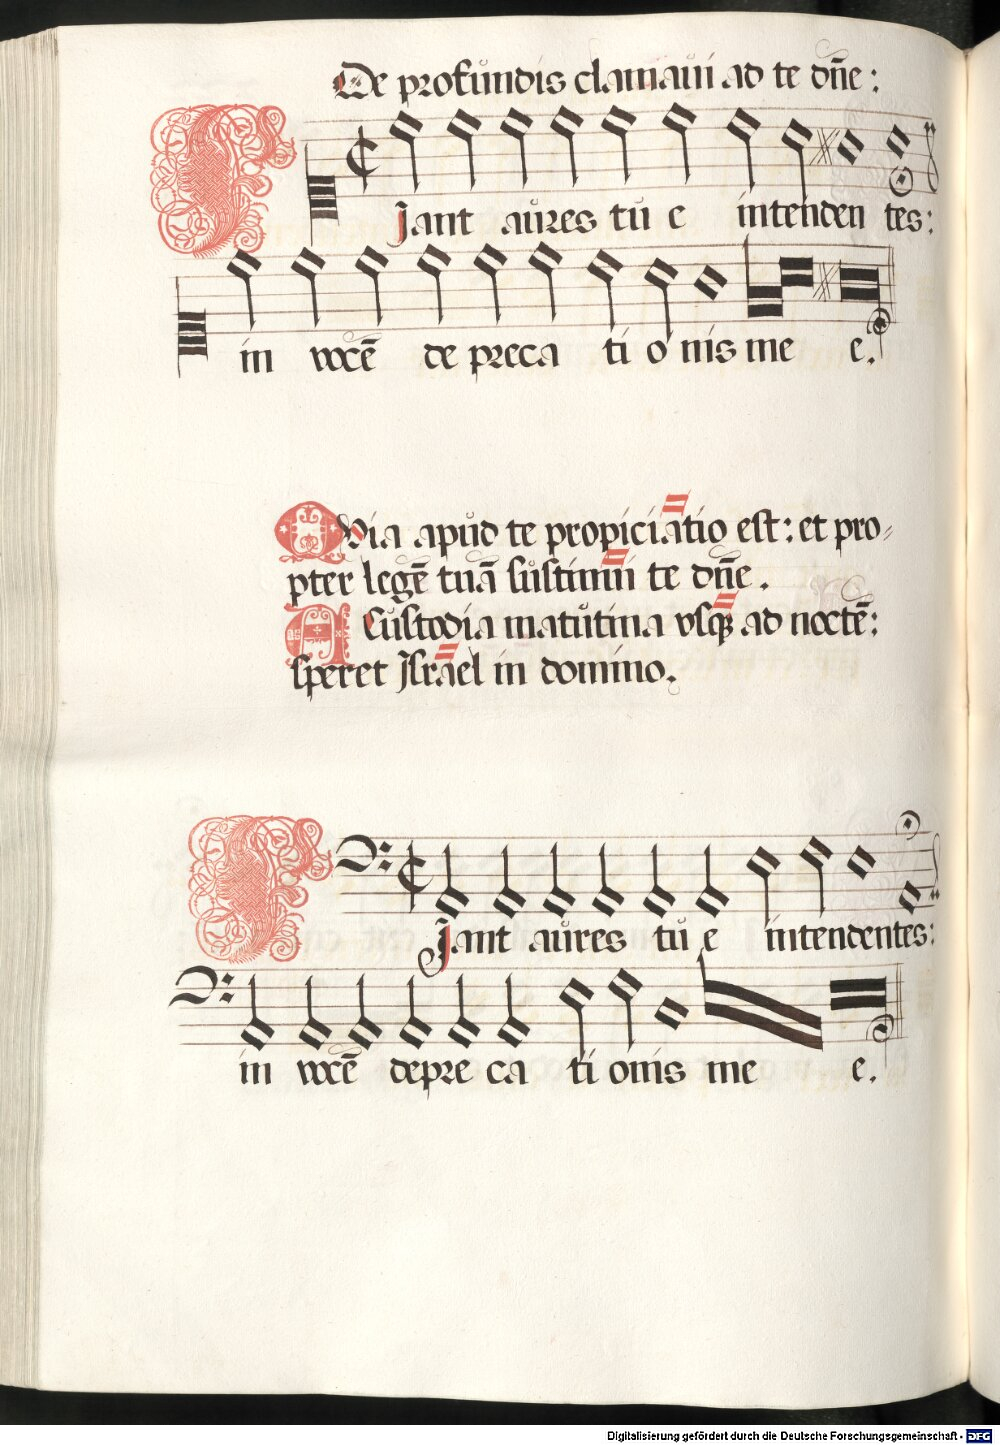 De profundis clamaui ad te dn̄e:
Fiant aůres tů e intenden tes:
in vocē de preca ti o nis me e.
Qvia apůd te propiciatio est: et pro=
pter legē tuā sůstinůi te dn̄e.
A Custodia matůtina vsqꝫ ad noctē:
speret Israel in domino.
Fiant aůres tů e intendentes:
in vocē depre ca ti onis me e.
Digitalisierung gefördert durch die Deutsche Forschungsgemeinschaft - DFG